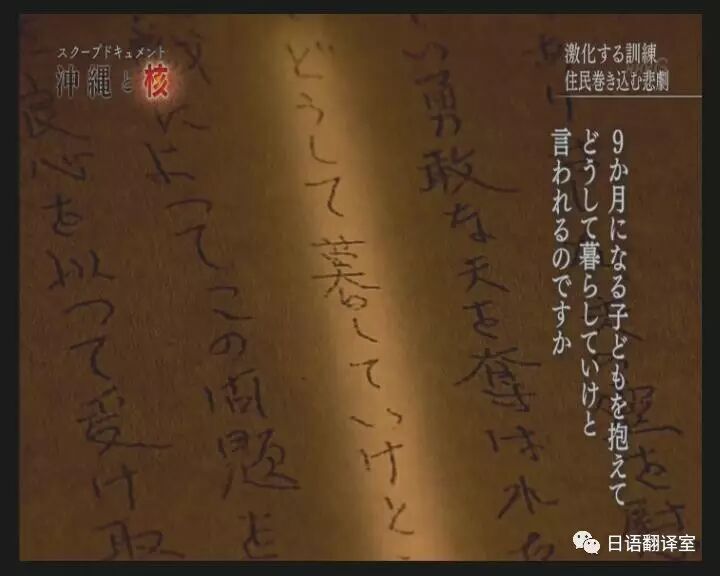 スクープドキュメント
沖縄と核
激化する訓練
住民巻き込む悲劇
9か月になる子どもを抱えて
どうして暮らしていけと
言われるのですか
い勇敢な夫を奪はれ
どうして暮していけと
によつてこの問題を
良心を以つて受け取
日语翻译室